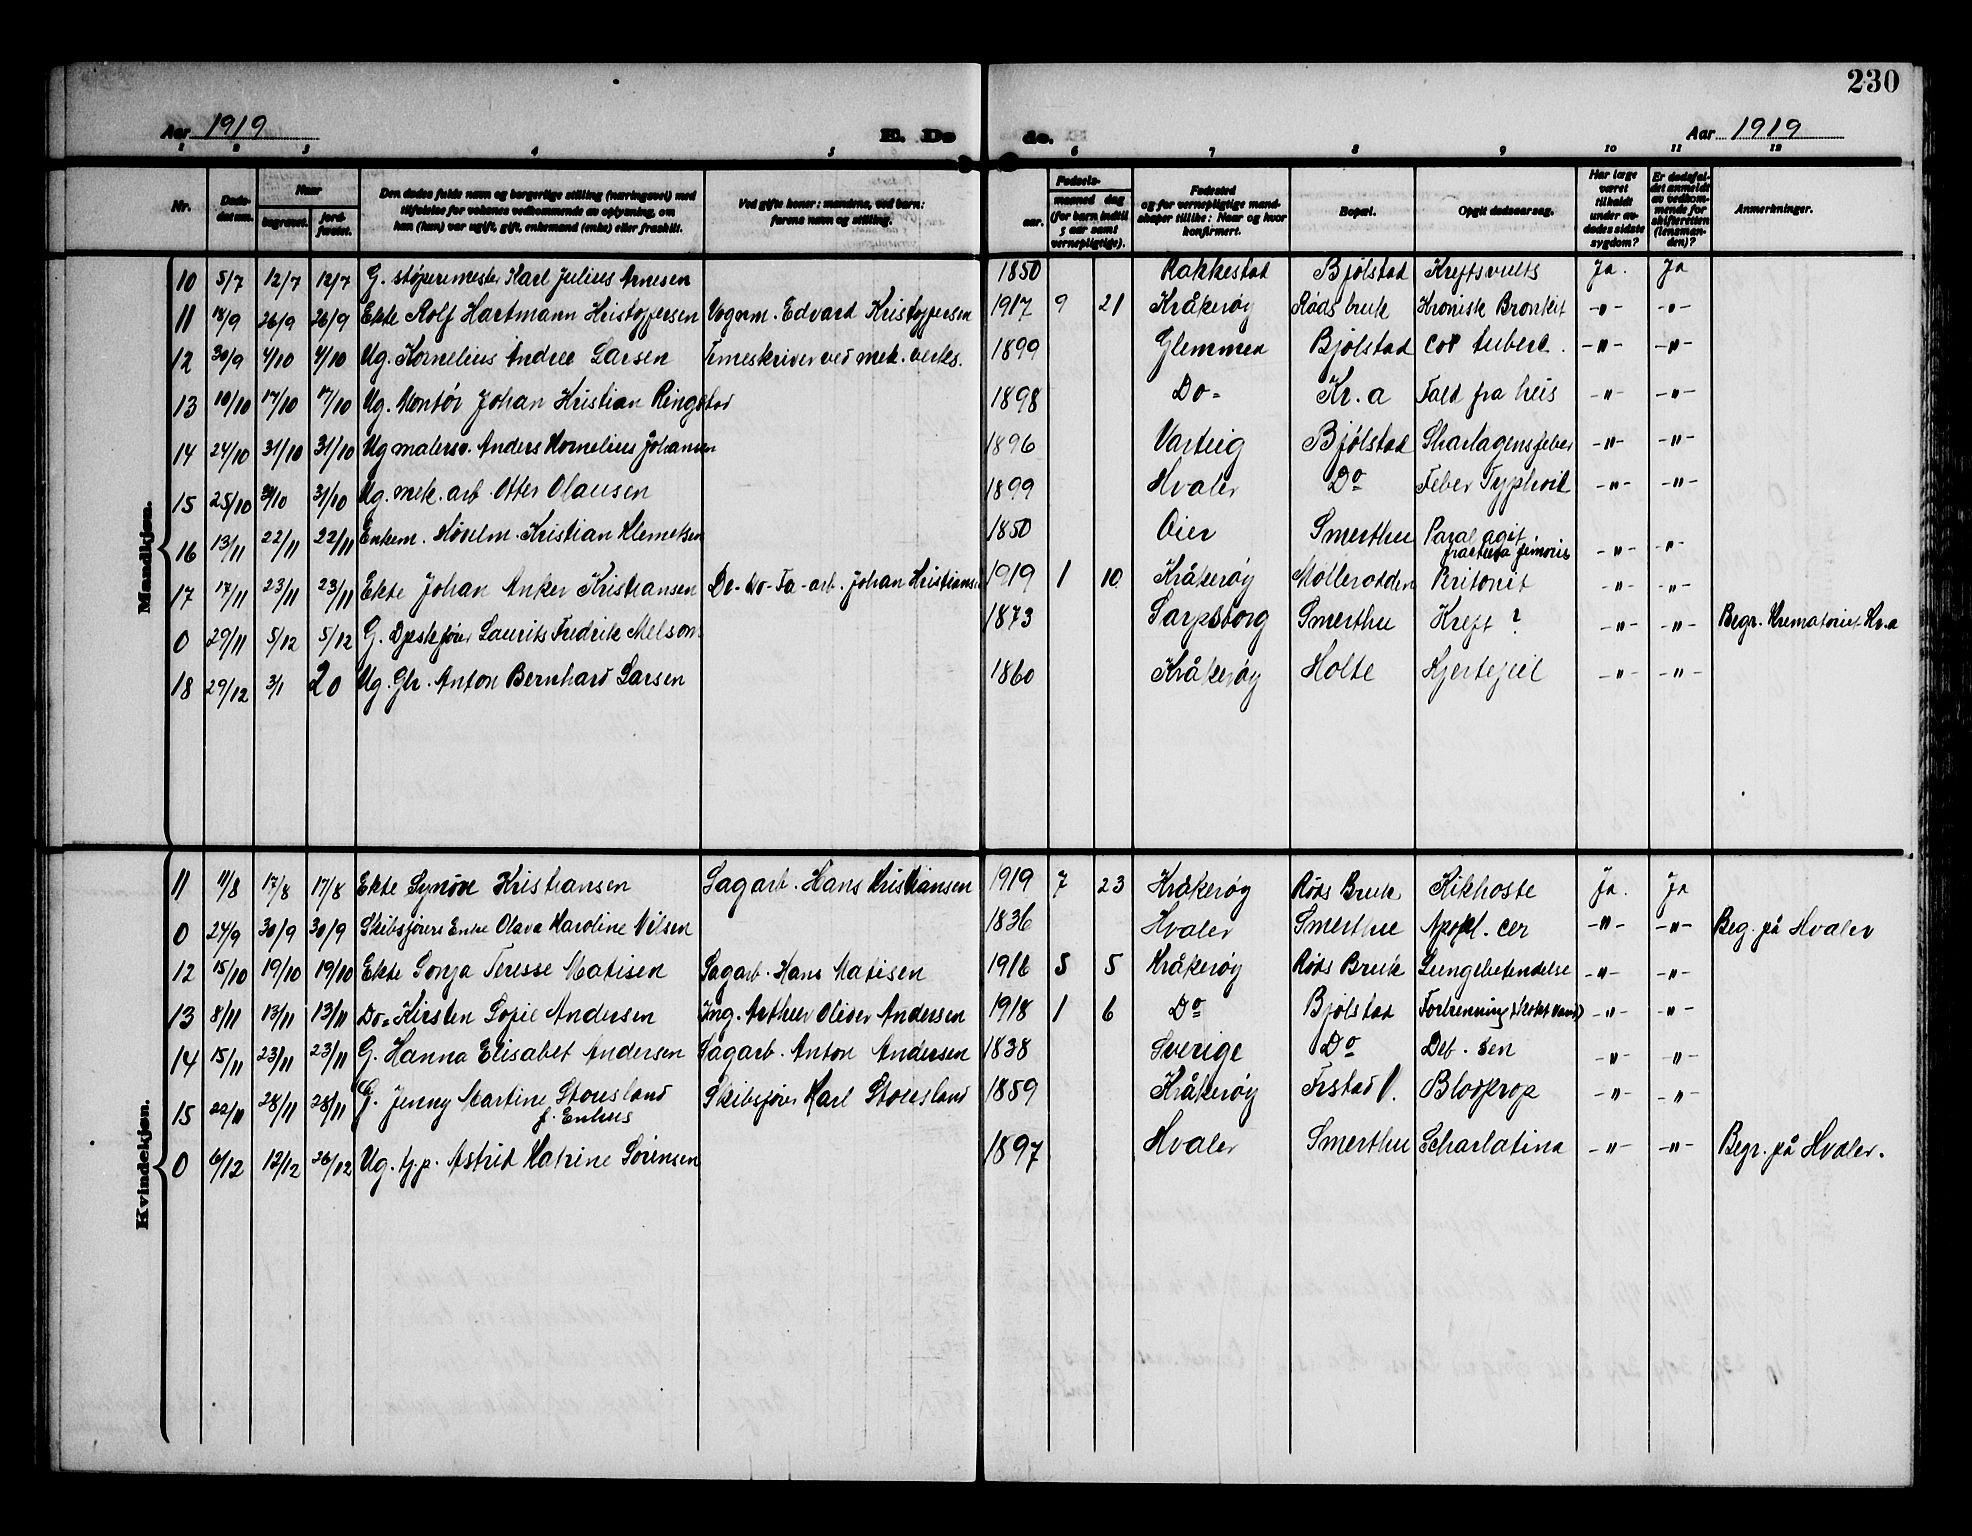 230
Aar 1919 E. Dø de. Aar 1919
1 2 3 4 5 6 7 8 9 10 11 12
Nr. Døds-datum. Naar begravet. jord-fæstet. Den dødes fulde navn og borgerlige stilling (næringsvei) med tilføielse for voksnes vedkommende av oplysning, om han (hun) var ugift, gift, enkemand (enke) eller fraskilt. Ved gifte koner: mandens, ved barn: farens navn og stilling. Fødsels- aar. maaned dag (for barn indtil 5 aar samt vernepligtige). Fødested og for vernepligtige mand-skaper tillike: Naar og hvor konfirmert. Bopæl. Opgit dødsaarsag. Har læge været tilkaldt under av-dødes sidste sygdom? Er dødsfal-det anmeldt av vedkom-mende for skifteretten (lensman-den)? Anmerkninger.
Mandkjøn.
10 5/7 12/7 12/7 G. støperimester Karl Julius Arnesen 1850 Rakkestad Bjølstad Kreftsvulst Ja. Ja
11 18/9 26/9 26/9 Ekte Rolf Hartmann Kristoffersen Vognm. Edvard Kristoffersen 1917 9 21 Kråkerøy Røds bruk Kronisk Bronkit -"- -"-
12 30/9 4/10 4/10 Ug. Kornelius Andree Larsen Timeskriver ved mek. verks. 1899 Glemmen Bjølstad cox tuberc. -"- -"-
13 10/10 17/10 17/10 Ug. Montør Johan Kristian Ringstad 1898 Do- Kr.a Fald fra hus -"- -"-
14 24/10 31/10 31/10 Ug malersv. Anders Kornelius Johansen 1896 Varteig Bjølstad Skarlagensfeber -"- -"-
15 25/10 31/10 31/10 Ug. mek. arb. Otter Olausen 1899 Hvaler Do Feber Typhoid -"- -"-
16 13/11 22/11 22/11 Enkem. Høvelm. Kristian Klemetsen 1850 Oier Smerthu Paral agit -"- -"-
fractura femoris
17 17/11 23/11 23/11 Ekte Johan Anker Kristiansen Do-do-Fa-arb. Johan Kristiansen 1919 1 10 Kråkerøy Møllerodden Peritonit -"- -"-
0 29/11 5/12 5/12 G. Laurits Fredrik Melsom 1873 Sarpsborg Smerthu Kreft ? -"- -"- Begr. Krematoriet Kr.a
18 29/12 3/1 20 Ug. Gbr. Anton Bernhard Larsen 1860 Kråkerøy Holte Hjertefeil -"- -"-
Kvindekjøn.
11 11/8 17/8 17/8 Ekte Synøve Kristiansen Sagarb. Hans Kristiansen 1919 7 23 Kråkerøy Røds Bruk Kikhoste Ja. Ja
0 24/9 30/9 30/9 Skibsførers Enke Olava Karoline Nilsen 1836 Hvaler Smerthu Apopl. cer -"- -"- Beg. på Hvaler
12 15/10 19/10 19/10 Ekte Sonja Teresse Matisen Sagarb. Hans Matisen 1916 5 5 Kråkerøy Røds Bruk Lungebetendelse -"- -"-
13 8/11 13/11 13/11 Do- Kirsten Sofie Andersen Ing. Arthur Oliver Andersen 1918 1 6 Do Bjølstad Forbrenning (kokt vand) -"- -"-
14 15/11 23/11 23/11 G. Hanna Elisabet Andersen Sagarb. Anton Andersen 1838 Sverige Do Deb. sen -"- -"-
15 22/11 28/11 28/11 G. Jenny Martine Storesland Skibsfører Karl Storesland 1859 Kråkerøy Frstad V. Blodprop -"- -"-
f. Enhus
0 6/12 12/12 26/12 Ug. tj.p. Astrid Katrine Sørensen 1897 Hvaler Smerthu Scharlatina -"- -"- Begr. på Hvaler.